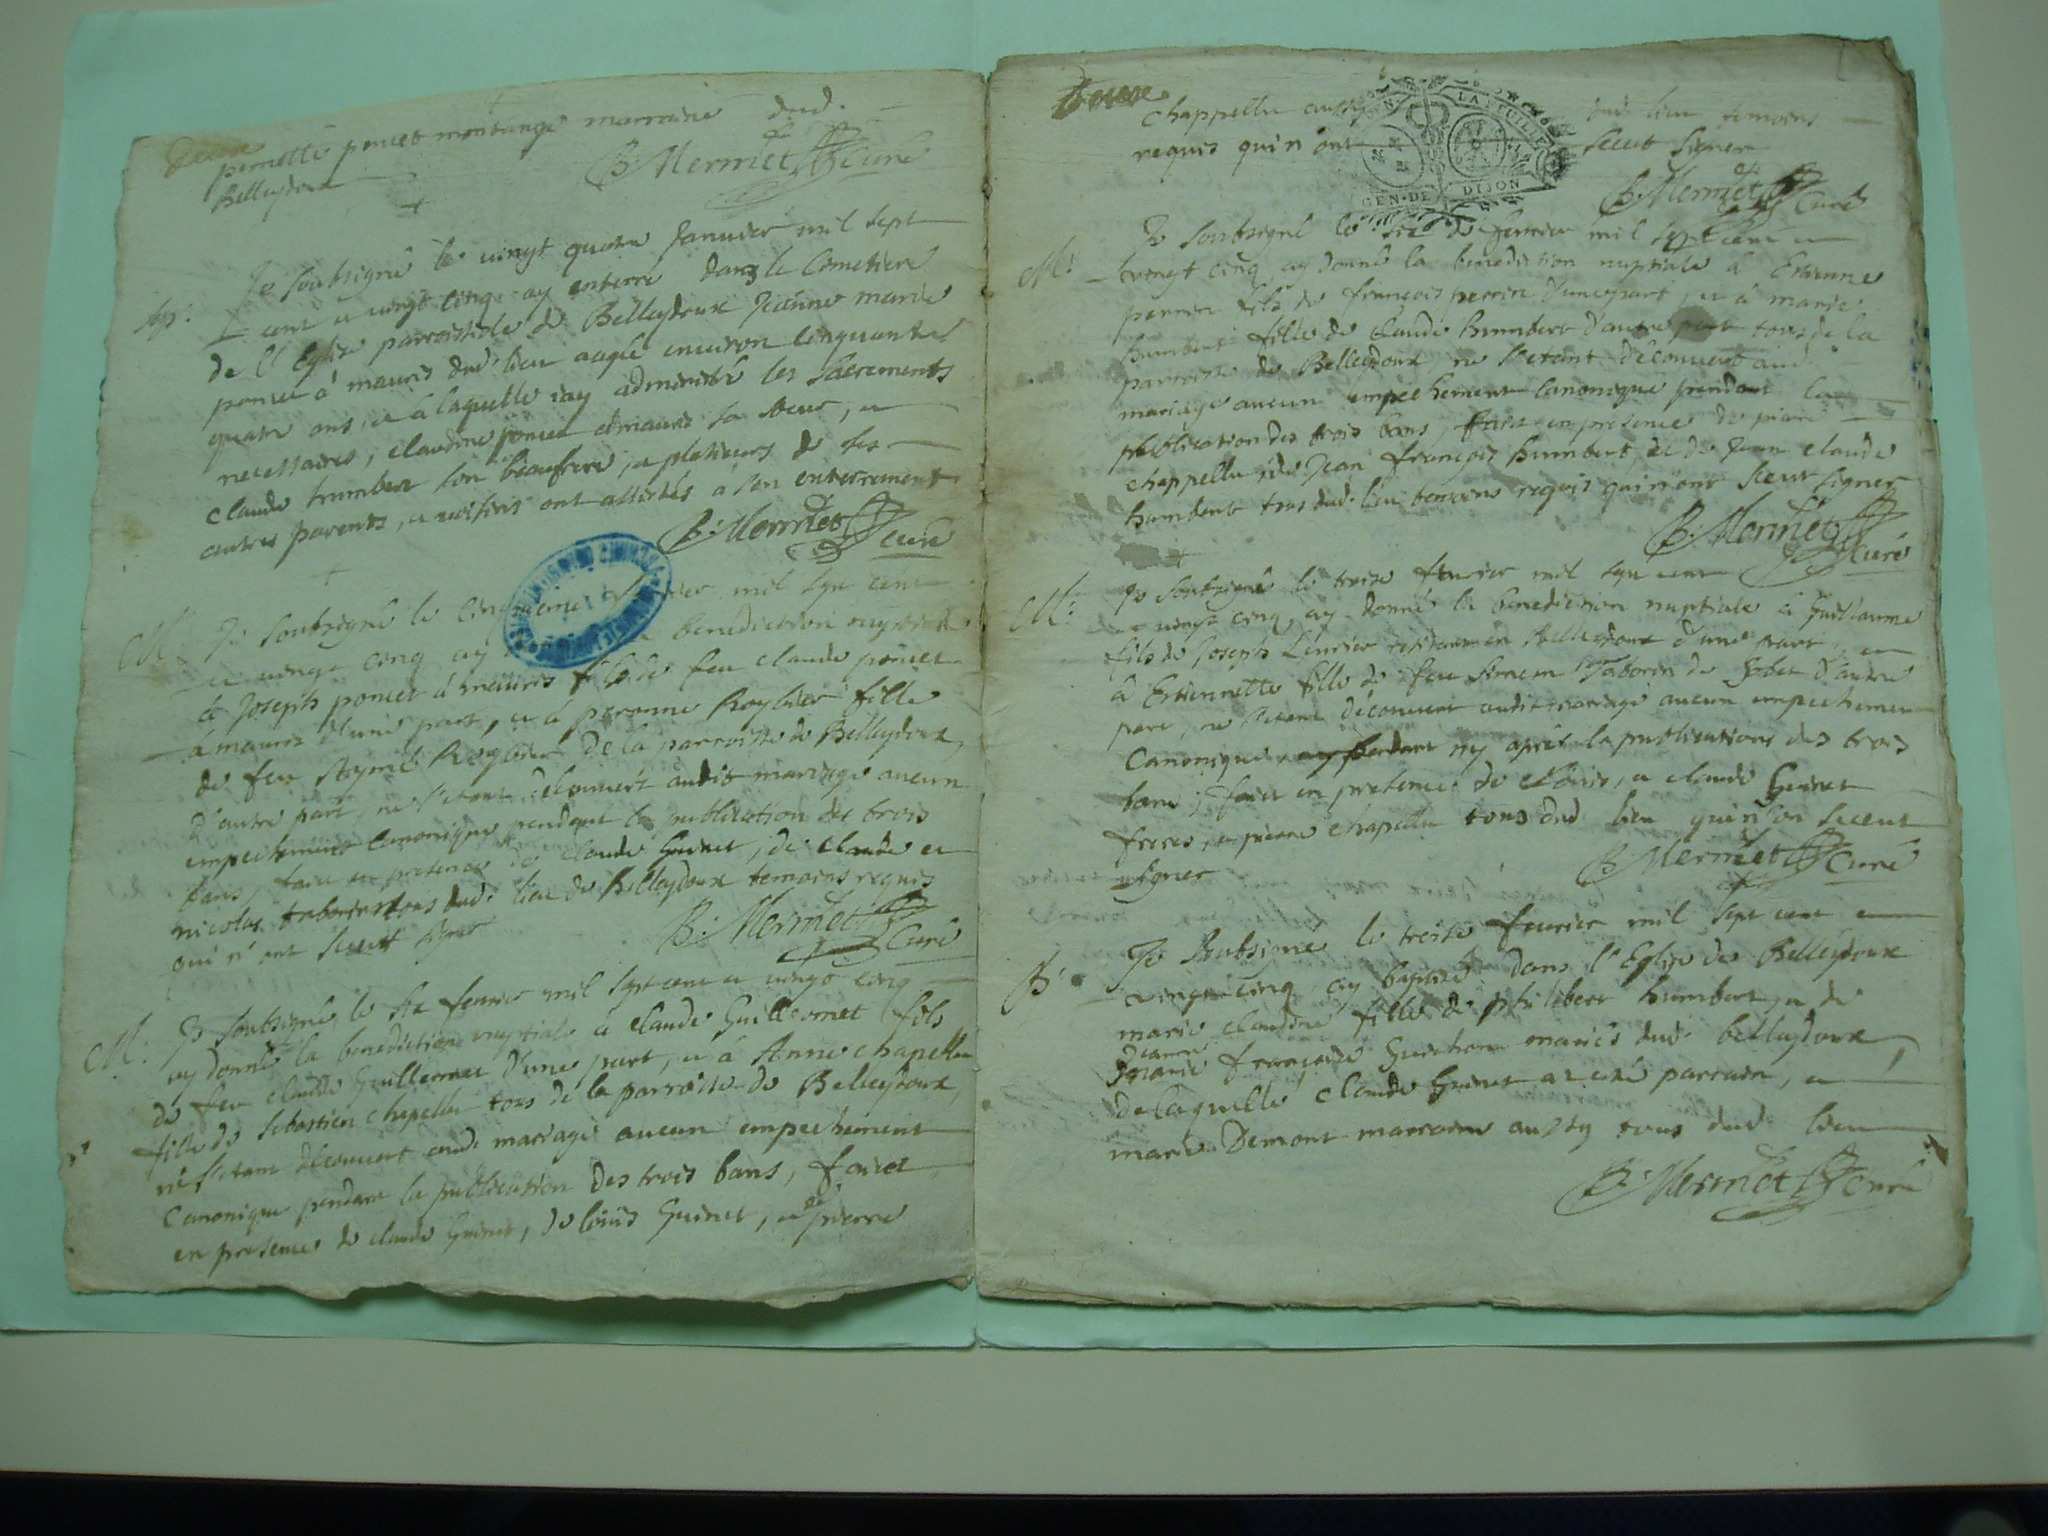 pernette poncet montange marraine dud.
Belleydoux
B: Mermet Curé
Je soubsigné le vingt quatre Janvier mil sept
cent et vingt cinq ay enterré dans le Cimetiere
de l'Eglise parroissiale de Belleydoux Jeanne marie
poncet à mauris dud. lieu aagée environ cinquante
quatre ans, et à laquelle iay administré les sacrements
necessaires, claudine poncet amauris sa soeur, et
claude humbert son beaufrere, et plusieurs de ses
autres parents, et voisins ont assistés à son enterrement
B: Mermet Curé
M: Je soubsigné le cinquieme mil sept cent
et vingt cinq ay benediction nuptiale
à Joseph poncet à mauris fils de feu claude poncet
à mauris d'une part, et à peronne Roybier fille
de feu Roybier de la parroisse de Belleydoux,
d'autre part, ne s'etant decouvert audit mariage aucun
empechement canonique pendant la publication des trois
bans, faict en presence de claude Guinet, de claude et
nicolas taborin tous dud. lieu de Belleydoux temoins requis
qui n'ont sceut signer
B: Mermet Curé
M: Je soubsigné le six fevrier mil sept cent et vingt cinq
ay donné la benediction nuptiale à claude Guillermet fils
de feu claude Guillermet d'une part, et à Anne chapellu
fille de sebastien chapellu tous de la parroisse de Belleydoux,
ne s'etant decouvert aud. mariage aucun empechement
canonique pendant la publication des trois bans, faict
en presence de claude Guinet, de louis Guinet, et de pierre
chapellu aussy dud. lieu temoins
requis qui n'ont sceut signer
LA FEUILLE
GEN. DE DIJON
B: Mermet Curé
M: Je soubsigné le six de fevrier mil sept cent et
vingt cinq, ay donné la benediction nuptiale à Estienne
perrin fils de françois perrin d'une part, et à marie
humbert fille de claude humbert d'autre part tous de la
parroisse de Belleydoux, ne s'etant decouvert aud.
mariage aucun empechement canonique pendant la
publication des trois bans, faict en presence de pierre
chapellu, de Jean françois humbert, et de Jean claude
humbert tous dud. lieu temoins requis qui n'ont sceut signer
B: Mermet Curé
M: Je soubsigné le treize fevrier mil sept cent
et vingt cinq, ay donné la benediction nuptiale à Guillaume
fils de Joseph residant en Belleydoux d'une part, et
à Estiennette fille de feu simeon Taborin de d'autre
part, ne s'etant decouvert audit mariage aucun empechement
canonique, ny apres la publications des trois
bans, faict en presence de et claude Guinet
freres, et pierre chapellu tous dud. lieu qui n'on sceut
signer
B: Mermet Curé
B: Je soubsigné le treize fevrier mil sept cent et
vingt cinq, ay baptisé dans l'Eglise de Belleydoux
marie claudine fille de philibert humbert, et de
Jeanne françoise mariés dud. belleydoux,
de laquelle claude Guinet a eté parrain, et
marie Demont marraine aussy tous dud. lieu
B: Mermet curé